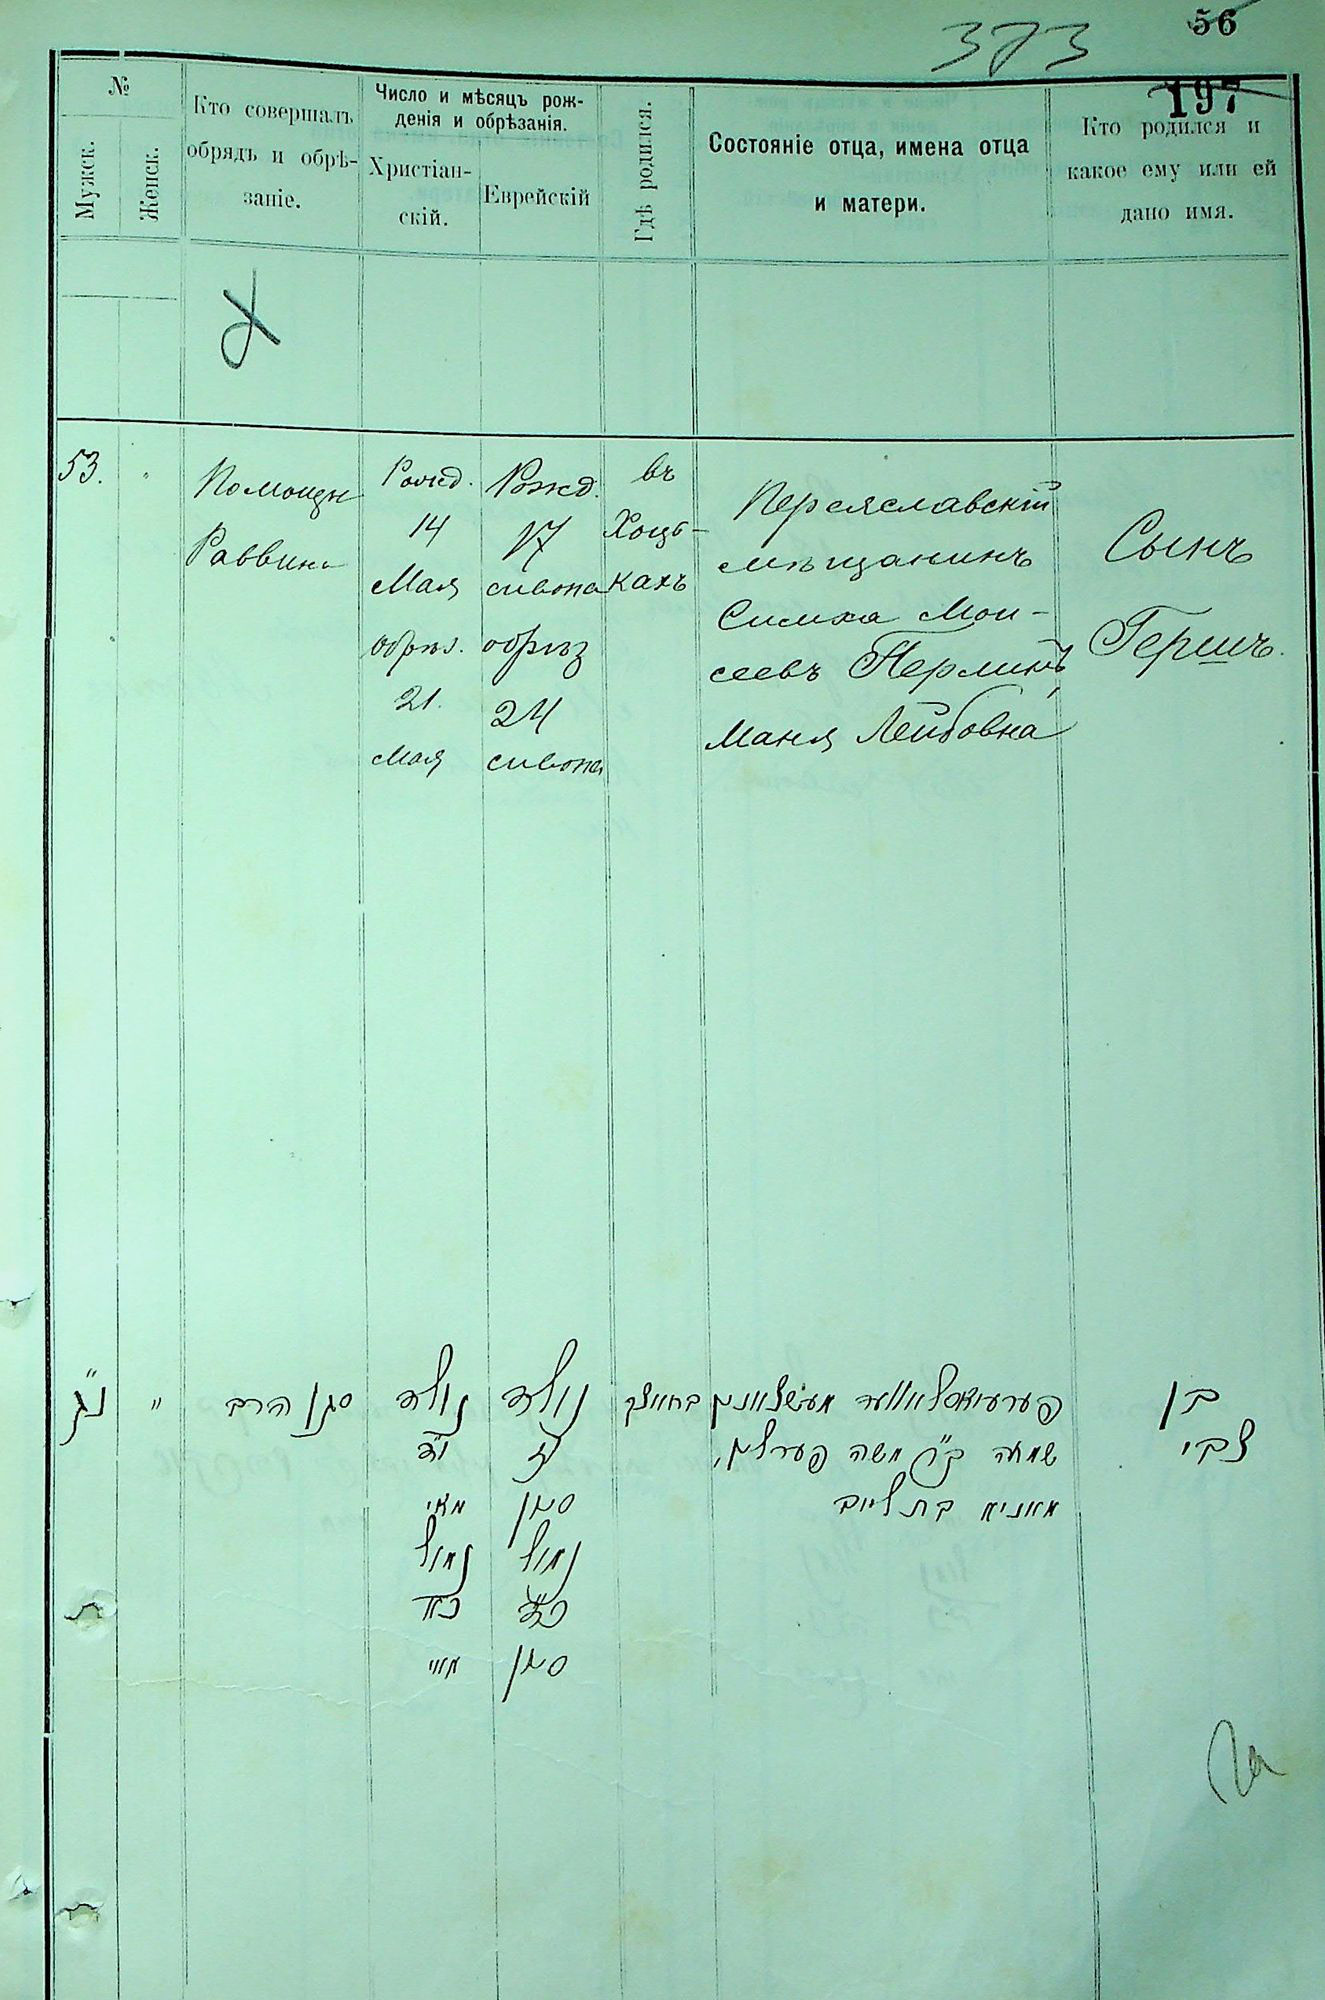 373
56
197
№
Мужск.
Женск.
Кто совершалъ
обрядъ и обрѣ-
заніе.
Число и мѣсяцъ рож-
денія и обрѣзанія.
Христіан-
скій.
Еврейскій
Гдѣ родился.
Состояніе отца, имена отца
и матери.
Кто родился и
какое ему или ей
дано имя.
53.
"
Помощн
Раввина
Рожд.
14
Мая
обрѣз.
21.
мая
Рожд.
17
сивона
обрѣз
24
сивона
въ
Хоцъ-
кахъ
Переяславскій
мѣщанинъ
Симха Мои-
сеевъ Перлинъ,
Маня Лейбовна
Сынъ
Гершъ.
נ"ג
"
סגן הרב
נולד
י"ד
מאי
נמול
כ"א
מאי
נולד
י"ז
סיון
נמול
כ"ד
סיון
בחאצק
פערעיאסלאווער מעשצאנין
שמחה ב"ר משה פערלין,
מאניא בת ליוב
בן
צבי